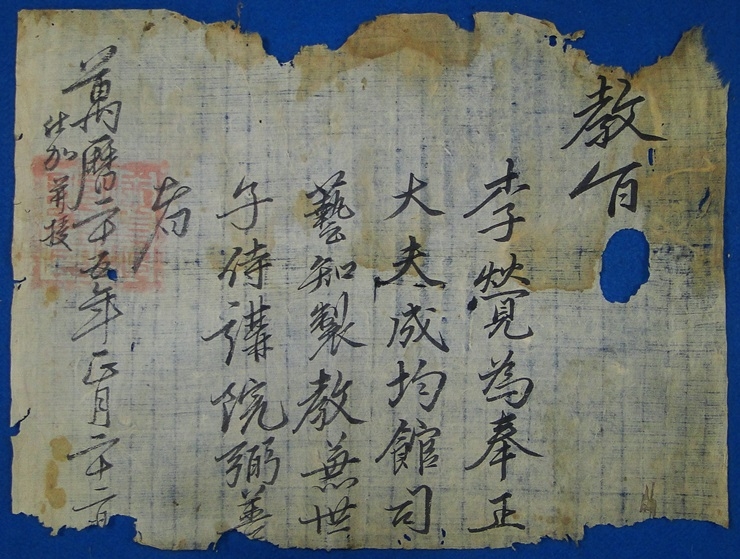 教旨
李覮為奉正
大夫成均館司
藝知製教兼世
子侍講院弼善
者
萬曆二十五年正月二十二日
仕加并授